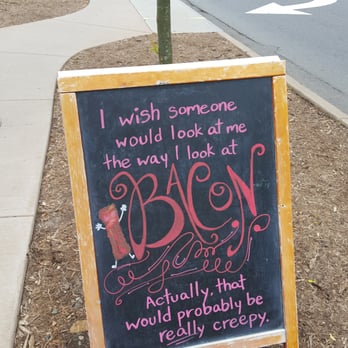 I wish someone
would look at me
the way I look at
BACON
Actually, that
would probably be
really creepy.